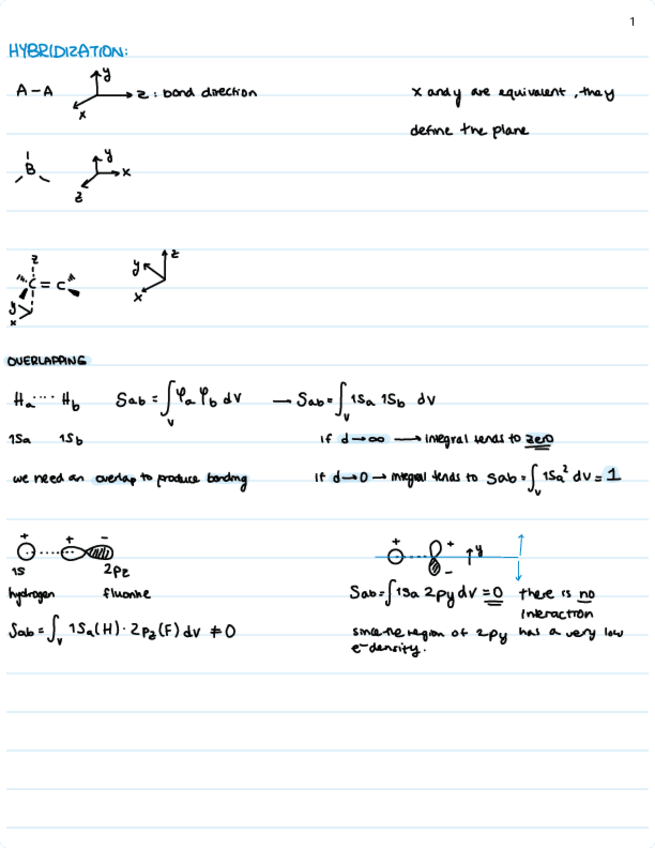 1
HYBRIDIZATION:
A-A y x z : bond direction x and y are equivalent, they
define the plane
B y x z
z
C = C y z x
y
x
OVERLAPPING
Ha···· Hb Sab = ∫v φa φb dv → Sab = ∫v 1Sa 1Sb dv
1Sa 1Sb if d → ∞ → integral tends to zero
we need an overlap to produce bonding if d → 0 → integral tends to Sab = ∫v 1Sa² dv = 1
+ + - + + y
1S 2Pz -
hydrogen fluorine Sab = ∫ 1Sa 2py dv = 0 there is no
interaction
Sab = ∫v 1Sa(H) · 2Pz(F) dv ≠ 0 since the region of 2py has a very low
e⁻ density.